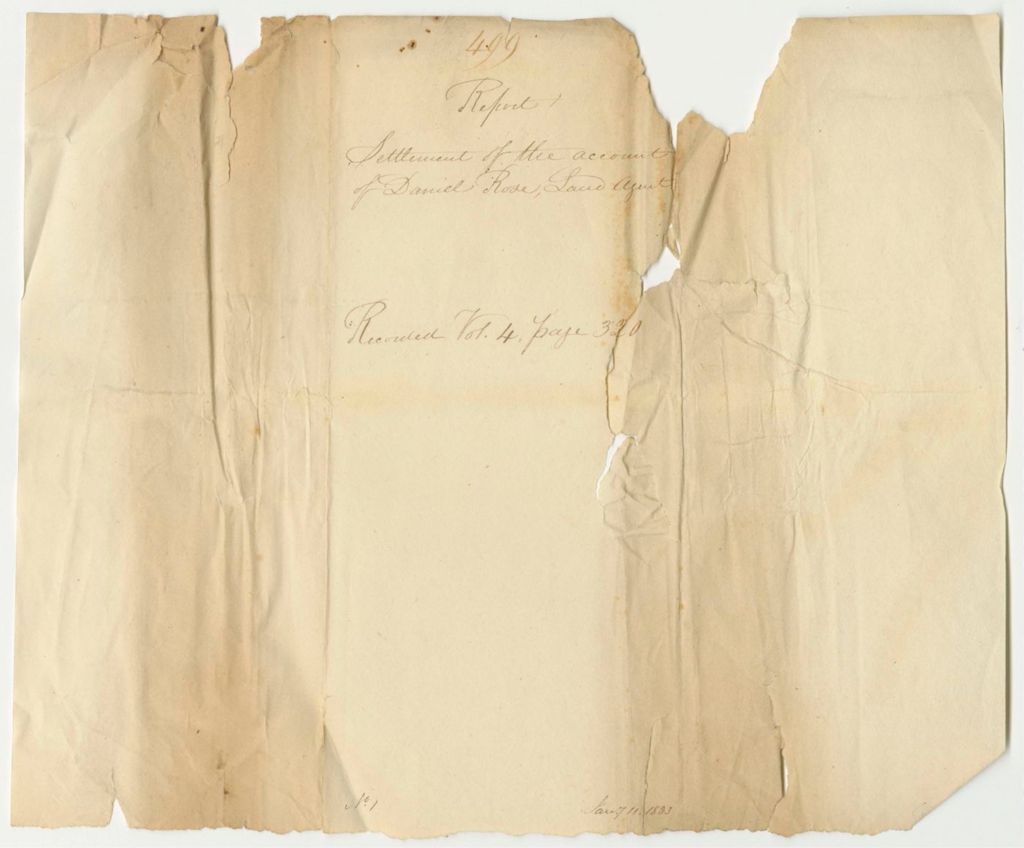 499
Report
Settlement of the account
of Daniel Rose, Land Agent
Recorded Vol. 4, page 320
No. 1
Jany 11. 1833